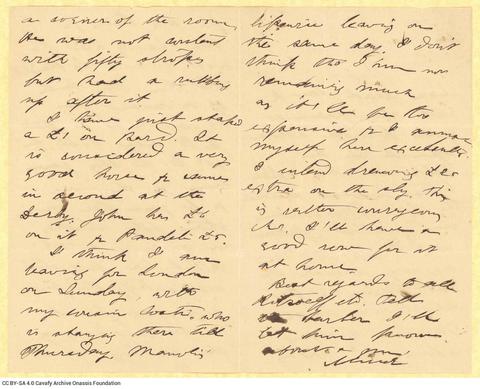 a corner of the room,
He was not content
with fifty strokes
but had a rubbing
up after it.
I have just staked
a £1 on Bard. It
is considered a very
good horse & came
in second at the
Derby. John has £6
on it & Pandeli £5.
I think I am
leaving for London
on Sunday, with
my cousin Costi, who
is staying there till
Thursday. Manoli
likewise leaving on
the same day. I don't
think tho' I am now
remaining much
as it'll be too
expensive & I amuse
myself here excellently.
I intend drawing £20
extra on the sly. This
is rather
tho. I'll have a
good row for it
at home.
Best regards to all
Tell
I'll
let him know
about a

CC BY-SA 4.0 Cavafy Archive Onassis Foundation